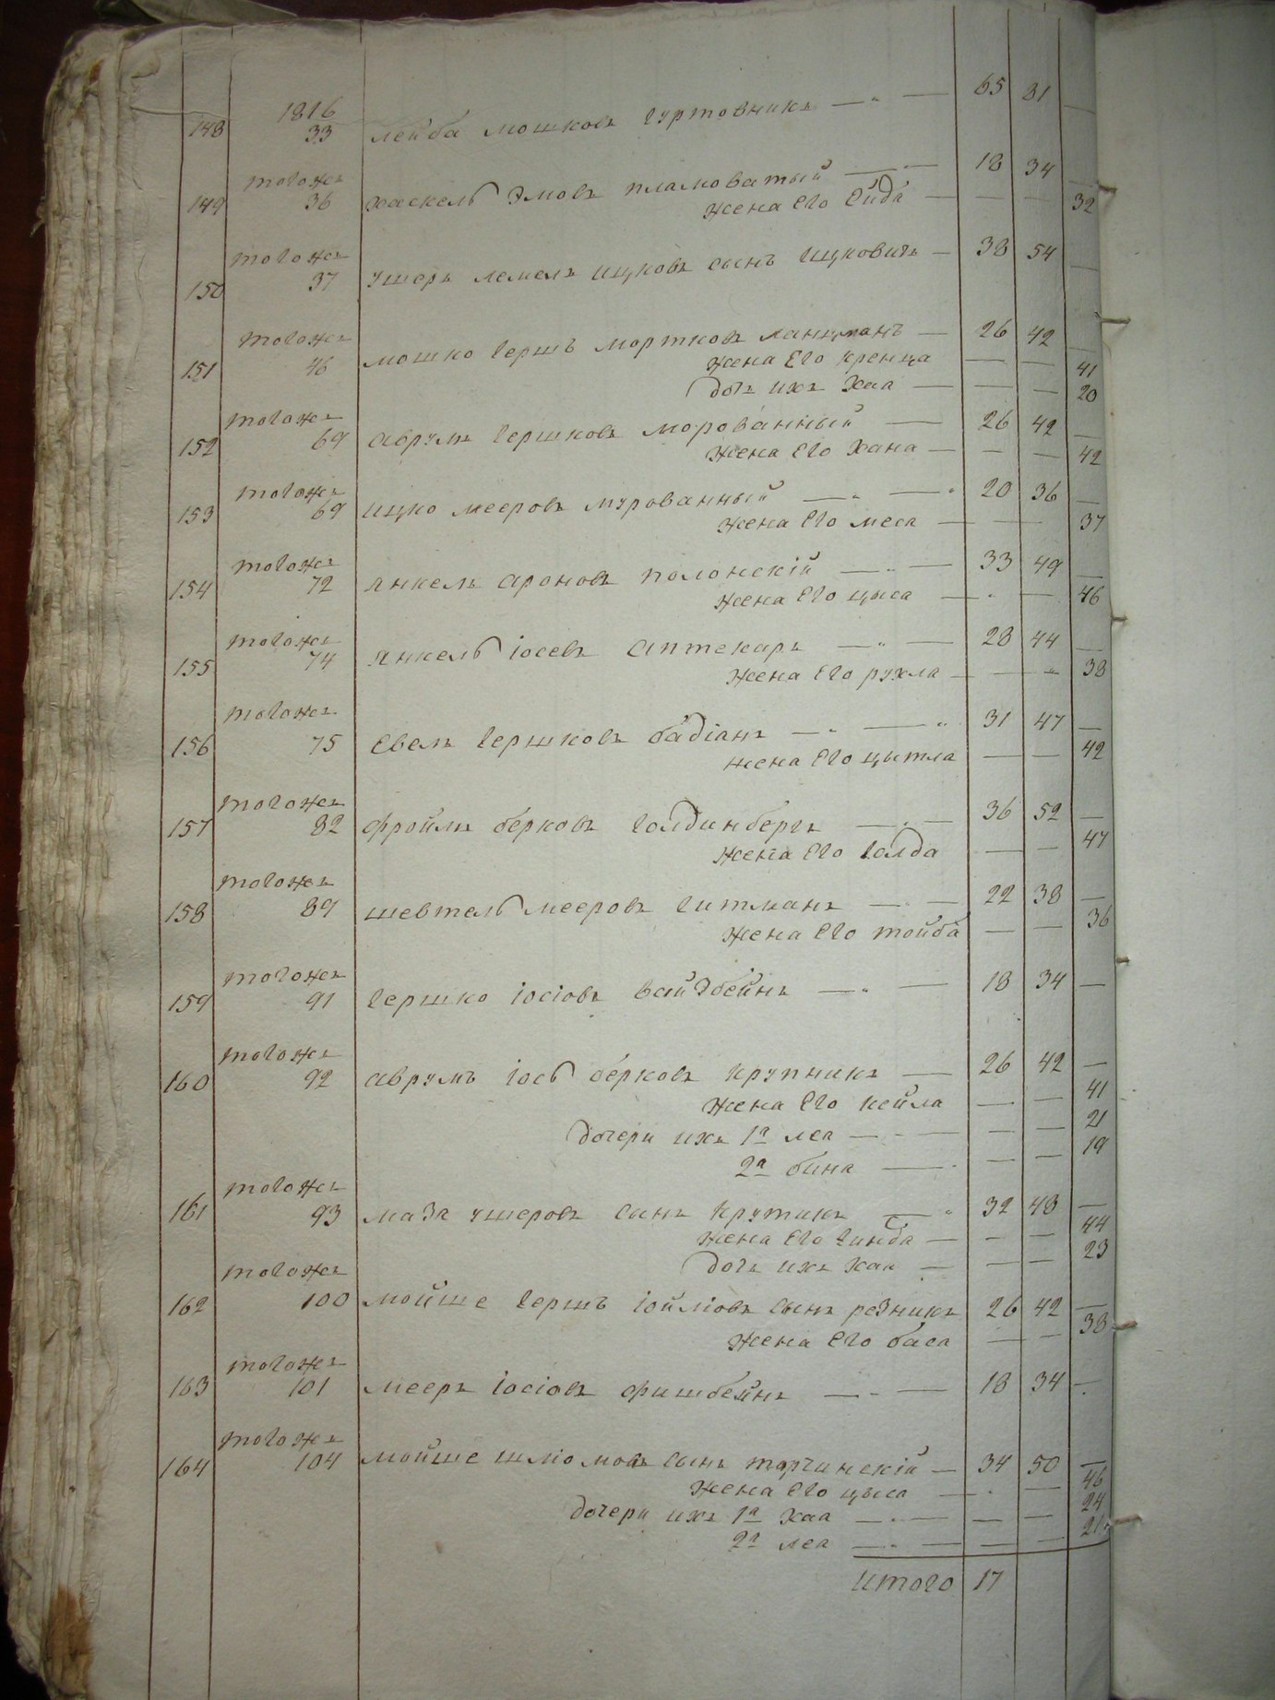 1816
148 33 Лейба Мошковъ Гуртовникъ — „ — 65 81 —
тогожъ
149 36 Хаскель Элiовъ — „ — 18 34 —
жена Его Ейда — — — 32
тогожъ
150 37 Ушеръ Лемель Ицковъ сынъ Ицковичъ — 38 54 —
тогожъ
151 46 Мошко Гершъ Мортковъ Ланцманъ — 26 42 —
жена Его Кренца — — 41
дочь ихъ Хая — — — 20
тогожъ
152 69 Аврумъ Гершковъ Морованный — 26 42 —
жена Его Хана — — — 42
тогожъ
153 69 Ицко Мееровъ Мурованный — „ — 20 36 —
жена Его Меса — — — 37
тогожъ
154 72 Янкель Ароновъ Полонскій — „ — 33 49 —
жена Его Цыса — „ — 46
тогожъ
155 74 Янкель Іосевъ Аптекаръ — „ — 28 44 —
жена Его Рухла — — „ 38
тогожъ
156 75 Евель Гершковъ Бадіанъ — „ — „ 31 47 —
жена Его Цытла — — 42
тогожъ
157 82 Фройлъ Берковъ Голдинбергъ — „ — 36 52 —
жена Его Голда — — 47
тогожъ
158 89 Шевтель Мееровъ Гитманъ — „ — 22 38 —
жена Его Тойба — — 36
тогожъ
159 91 Гершко Іосіовъ Вайзбейнъ — „ — 18 34 —
тогожъ
160 92 Аврумъ Іось Берковъ Крупникъ — 26 42 —
жена Его Кейла — — 41
дочери ихъ 1я Леа — „ — — — 21
2я Бина — „ — — 19
тогожъ
161 93 Мазя Ушеровъ сынъ Крутикъ — „ 32 48 —
жена Его Гинда — — — 44
дочь ихъ Хая — — — 23
тогожъ
162 100 Мойше Гершъ Іойліовъ сынъ Резникъ 26 42 —
жена Его Баса — — 38
тогожъ
163 101 Мееръ Іосіовъ Фишбейнъ — „ — 18 34 —
тогожъ
164 104 Мойше Шліомовъ сынъ Торчинскій — 34 50 —
жена Его Цыса — „ — 46
дочери ихъ 1я Хая — „ — — — 24
2я Леа — „ — — — 21
Итого 17